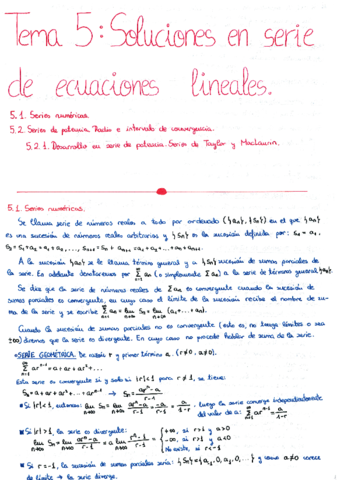 Tema 5: Soluciones en serie
de ecuaciones lineales.
5.1. Series numéricas.
5.2. Series de potencia. Radio e intervalo de convergencia.
5.2.1. Desarrollo en serie de potencia. Series de Taylor y MacLaurin.
5.1. Series numéricas.
Se llama serie de números reales a todo par ordenado ({an}, {Sn}) en el que {an}
es una sucesión de números reales arbitrarios y {Sn} es la sucesión definida por: S1 = a1,
S2 = S1 + a2 = a1 + a2, ..., Sn+1 = Sn + an+1 = a1 + a2 + ... + an + an+1.
A la sucesión {an} se le llama término general y a {Sn} sucesión de sumas parciales de
la serie. En adelante denotaremos por ∞∑n=1 an (o simplemente ∑an) a la serie de término general {an}.
Se dice que la serie de números reales de ∑an es convergente cuando la sucesión de
sumas parciales es convergente, en cuyo caso el límite de la sucesión recibe el nombre de su-
ma de la serie y se escribe ∞∑n=1 an = lim n→∞ Sn = lim n→∞ (a1 + ... + an).
Cuando la sucesión de sumas parciales no es convergente (esto es, no tenga límites o sea
±∞) diremos que la serie es divergente. En cuyo caso no procede hablar de suma de la serie.
• SERIE GEOMÉTRICA. De razón r y primer término a. (r≠0, a≠0).
∞∑n=1 ar^(n-1) = a + ar + ar² + ...
Esta serie es convergente si y solo si |r|<1 para r≠1, se tiene:
Sn = a + ar + ar² + ... + ar^(n-1) → Sn = (ar^n - a)/(r-1)
• Si |r|<1, entonces: lim n→∞ Sn = lim n→∞ (ar^n - a)/(r-1) = -a/(r-1) = a/(1-r). Luego la serie converge independientemente
del valor de a: ∞∑n=1 ar^(n-1) = a/(1-r)
• Si |r|>1, la serie es divergente:
lim n→∞ Sn = lim n→∞ (ar^n - a)/(r-1) = a lim n→∞ (r^n - 1)/(r-1) = { +∞, si r>1 y a>0
-∞, si r>1 y a<0
No existe, si r<-1
• Si r=-1, la sucesión de sumas parciales sería: {Sn} = {a, 0, a, 0, ...} y como a≠0 carece
de límite → la serie diverge.